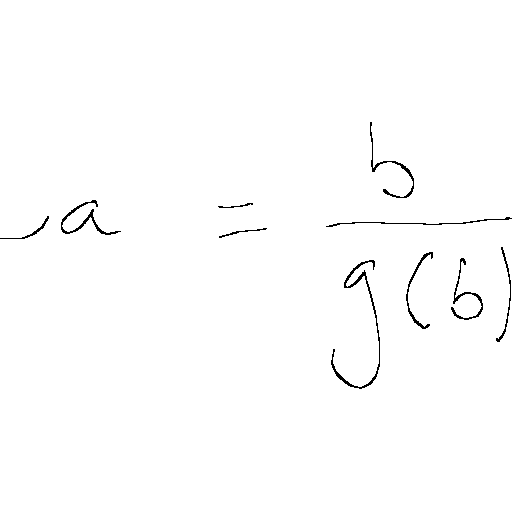 a = \frac{b}{g(b)}